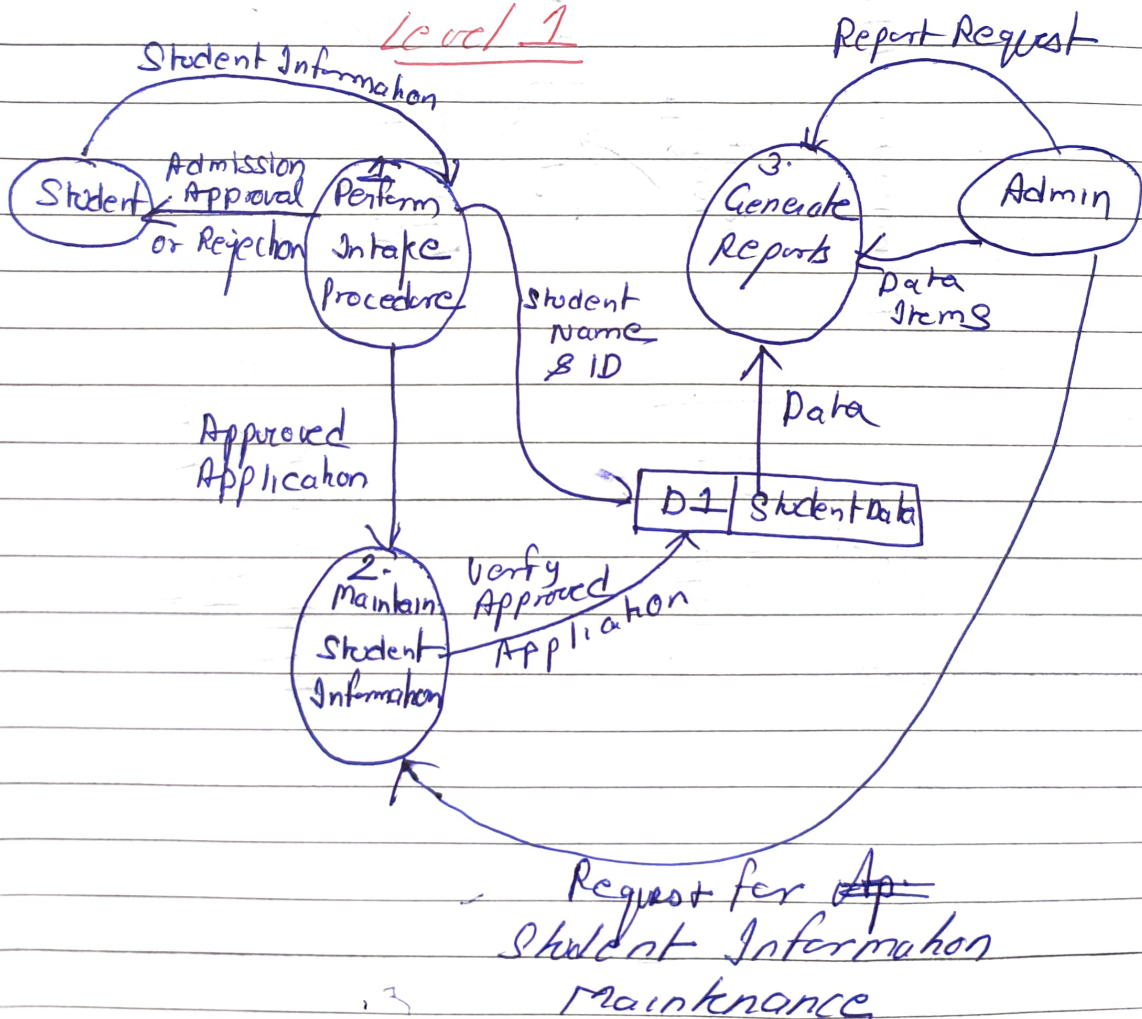 Level 1
Report Request
Student Information
Student
Admission
Approval
or Rejection
1.
Perform
Intake
Procedure
3.
Generate
Reports
Admin
Data
Items
Student
Name
& ID
Data
Approved
Application
D1 Student Data
2.
Maintain
Student
Information
Verfy
Approved
Application
Request for
Student Information
Maintenance